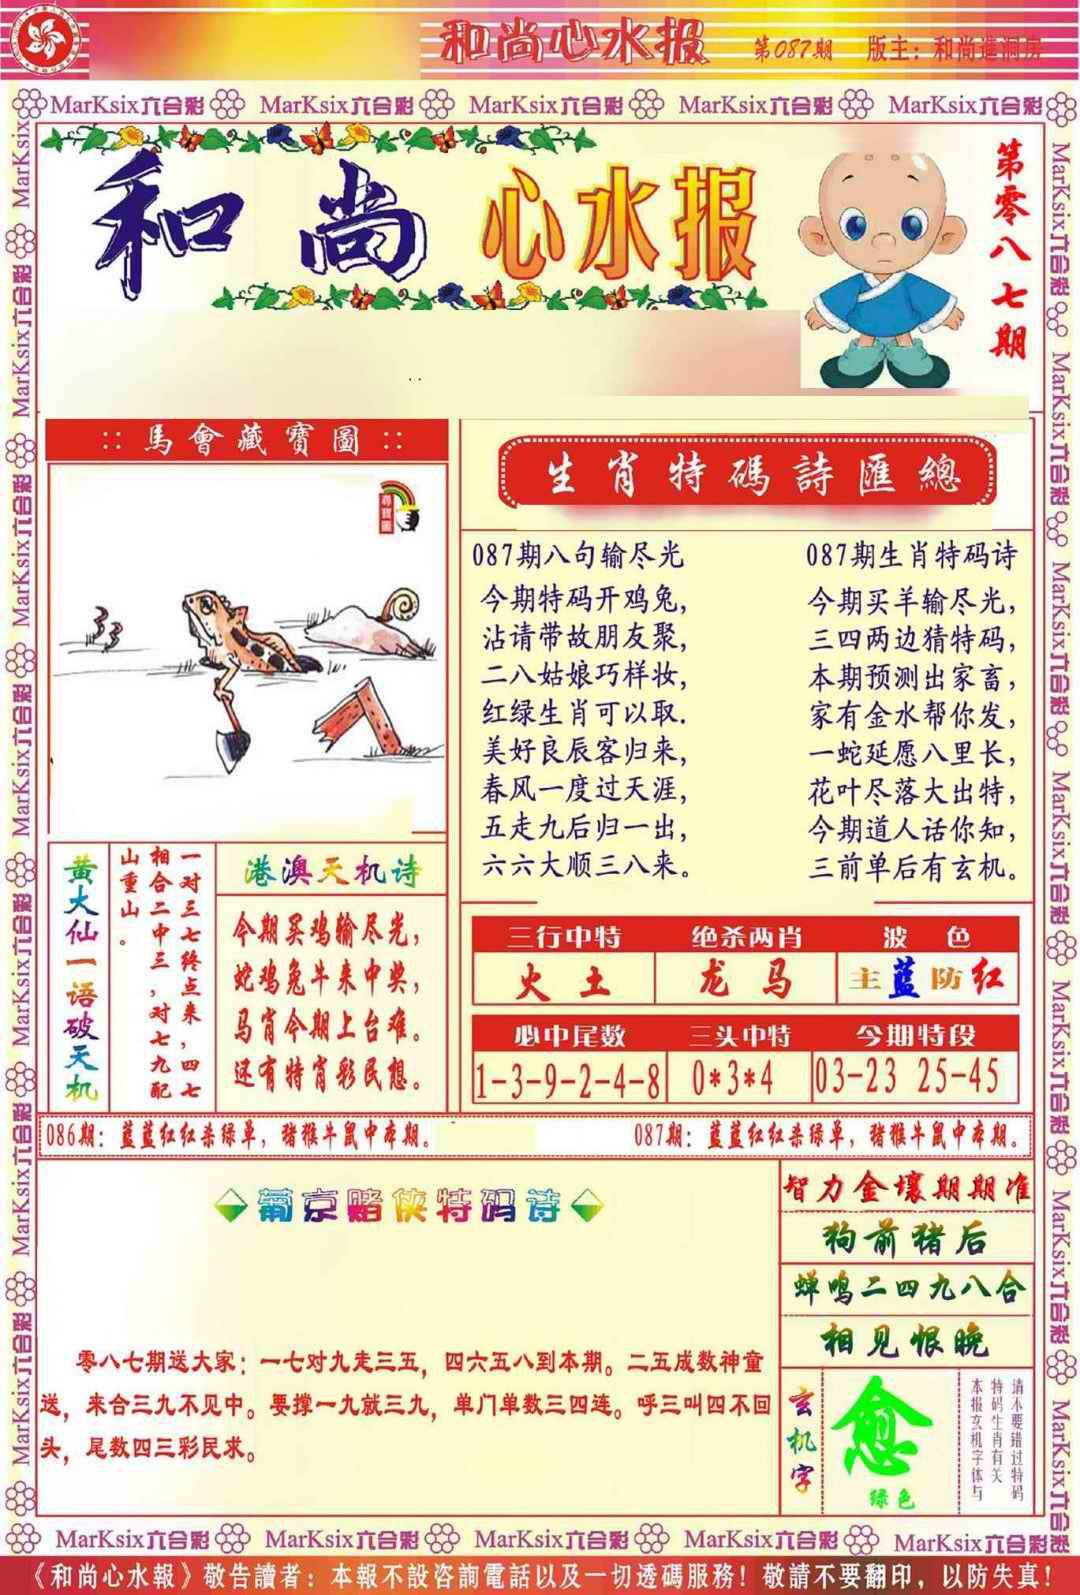 和尚心水报 第087期 版主：和尚進洞房
MarKsix六合彩 MarKsix六合彩 MarKsix六合彩 MarKsix六合彩 MarKsix六合彩
和尚心水报
第零八七期
::馬會藏寶圖::
尋寶圖
生肖特碼詩匯總
087期八句输尽光
今期特码开鸡兔,
沾请带故朋友聚,
二八姑娘巧样妆,
红绿生肖可以取.
美好良辰客归来,
春风一度过天涯,
五走九后归一出,
六六大顺三八来。
087期生肖特码诗
今期买羊输尽光,
三四两边猜特码,
本期预测出家畜,
家有金水帮你发,
一蛇延愿八里长,
花叶尽落大出特,
今期道人话你知,
三前单后有玄机。
黄大仙一语破天机
一对三七终点来,四七
相合二中三,对七九配
山重山。
港澳天机诗
今期买鸡输尽光,
蛇鸡兔牛来中奖,
马肖今期上台难。
还有特肖彩民想。
三行中特 绝杀两肖 波色
火土 龙马 主蓝防红
必中尾数 三头中特 今期特段
1-3-9-2-4-8 0*3*4 03-23 25-45
086期：蓝蓝红红杀绿单，猪猴牛鼠中本期。
087期：蓝蓝红红杀绿单，猪猴牛鼠中本期。
葡京赌侠特码诗
零八七期送大家：一七对九走三五，四六五八到本期。二五成数神童
送，来合三九不见中。要撑一九就三九，单门单数三四连。呼三叫四不回
头，尾数四三彩民求。
智力金壤期期准
狗前猪后
蝉鸣二四九八合
相见恨晚
玄机字
愈
绿色
请不要错过特码
特码生肖有关
本报玄机字体与
MarKsix六合彩 MarKsix六合彩 MarKsix六合彩 MarKsix六合彩 MarKsix六合彩
《和尚心水報》敬告讀者：本報不設咨詢電話以及一切透碼服務！敬請不要翻印，以防失真！